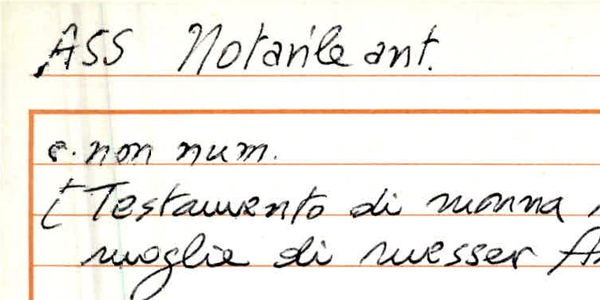 ASS Notarile ant.
c. non num.
[ Testamento di monna
moglie di messer